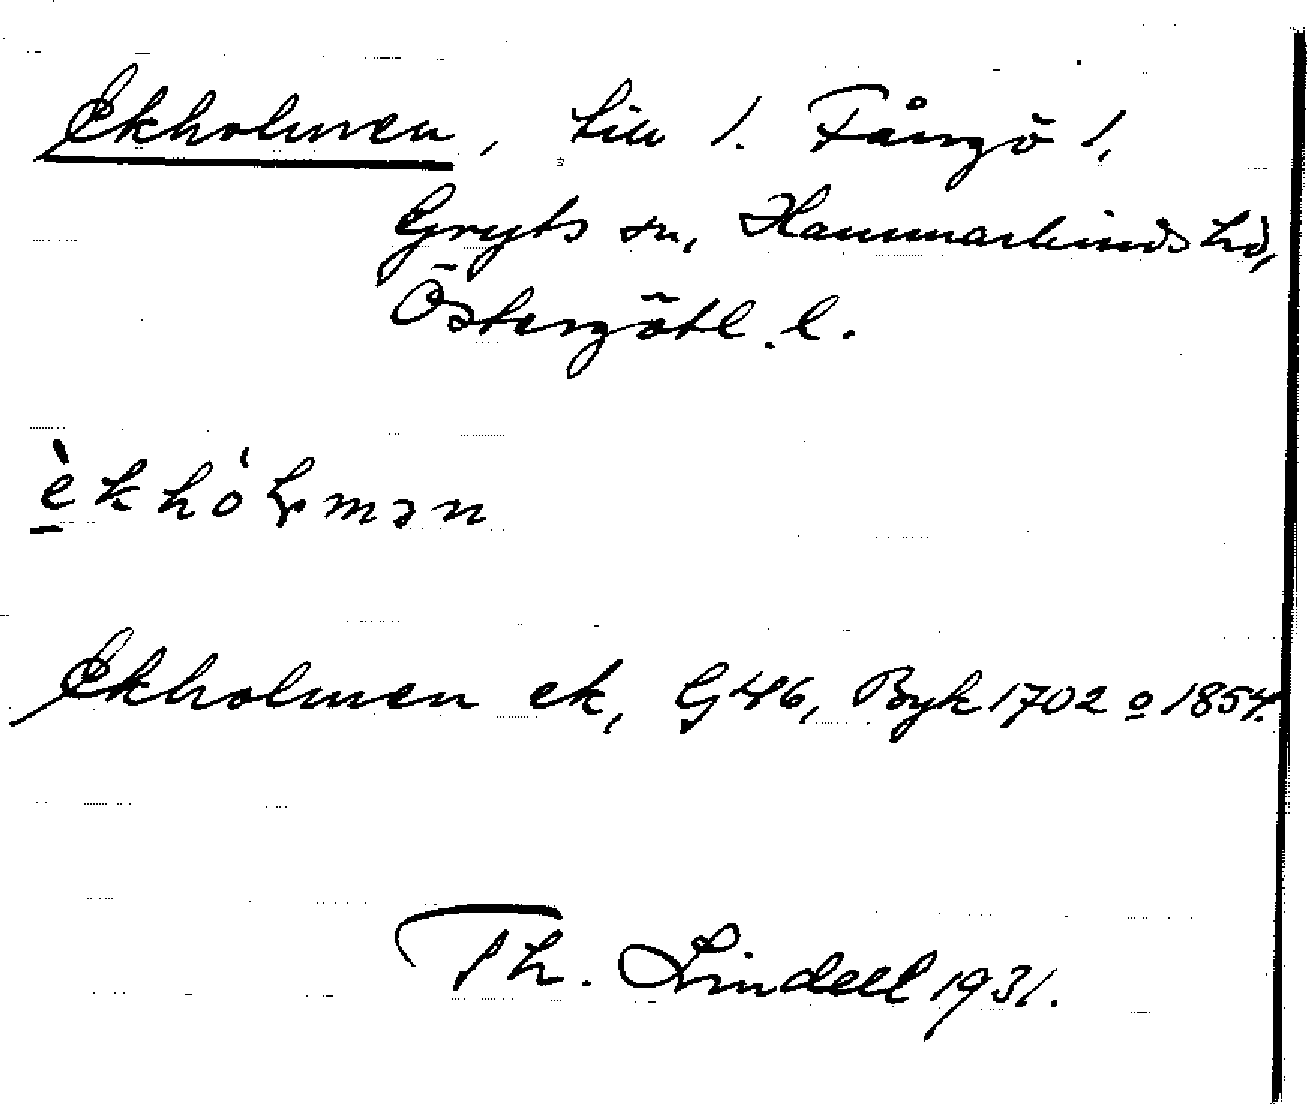 Ekholmen, till 1. Fångö 1,
Gryts sn, Hammarkinds hd,
Östergötl. l.
èkhòlmən
Ekholmen ek, G 46, Byk 1702 o 1854.
Th. Lindell 1931.